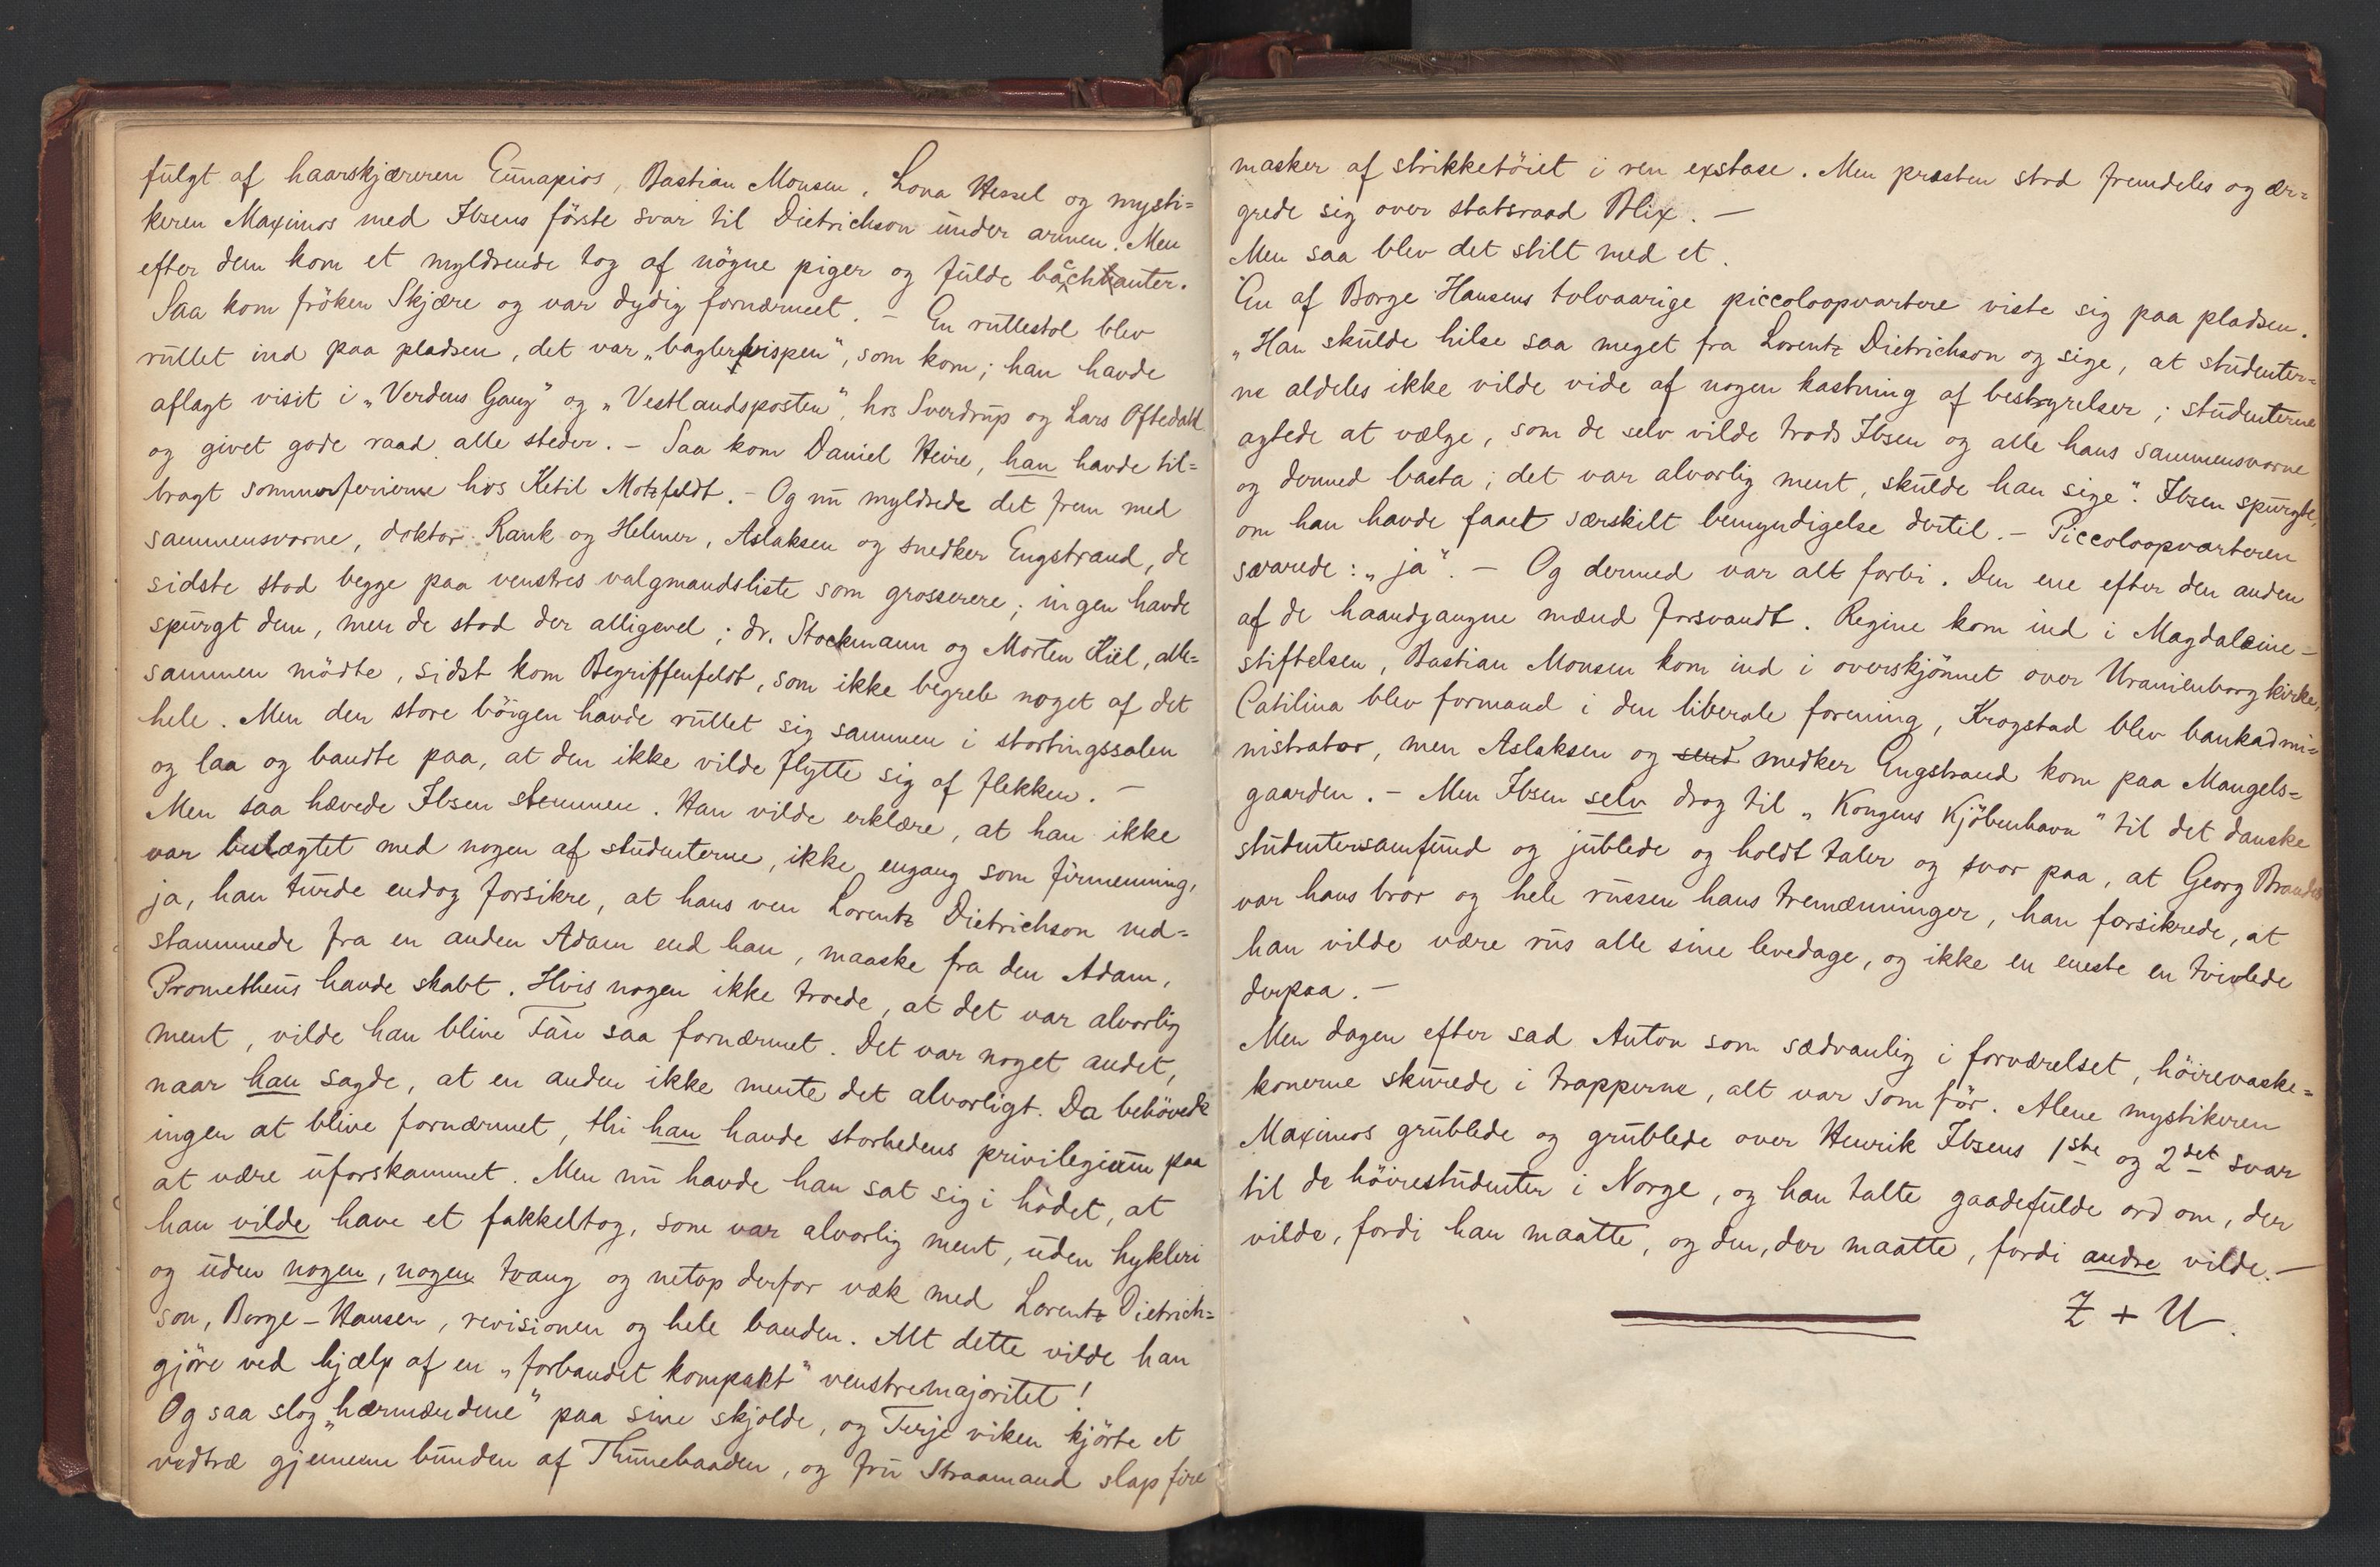 fulgt af haarskjæreren Eunapios, Bastian Monsen, Lona Hessel og mysti=
keren Maximos med Ibsens förste svar til Dietrichson under armen. Men
efter dem kom et myldrende tog af nögne piger og fulde bacchanter.
Saa kom fröken Skjære og var dydig fornærmet. – En rullestol blev
rullet ind paa pladsen, det var „baglerbispen", som kom; han havde
aflagt visit i „Verdens Gang" og „Vestlandsposten", hos Sverdrup og Lars Oftedahl
og givet gode raad alle steder. – Saa kom Daniel Heire, han havde til=
bragt sommerferierne hos Ketil Motzfeldt. – Og nu myldrede det frem med
sammensvorne, doktor Rank og Helmer, Aslaksen og snedker Engstrand, de
sidste stod begge paa venstres valgmandsliste som grosserere; ingen havde
spurgt dem, men de stod der alligevel; dr. Stockmann og Morten Kiil, alle=
sammen mödte, sidst kom Begriffenfeldt, som ikke begreb noget af det
hele. Men den store böigen havde rullet sig sammen i stortingssalen
og laa og bandte paa, at den ikke vilde flytte sig af flekken. –
Men saa hævede Ibsen stemmen. Han vilde erklære, at han ikke
var beslægtet med nogen af studenterne, ikke engang som firmenning,
ja, han turde endog forsikre, at hans ven Lorentz Dietrichson ned=
stammede fra en anden Adam end han, maaske fra den Adam,
Prometheus havde skabt. Hvis nogen ikke troede, at det var alvorlig
ment, vilde han blive saa fornærmet. Det var noget andet,
naar han sagde, at en anden ikke mente det alvorligt. Da behövede
ingen at blive fornærmet, thi han havde storhedens privilegium paa
at være uforskammet. Men nu havde han sat sig i hodet, at
han vilde have et fakkeltog, som var alvorlig ment, uden hykleri
og uden nogen, nogen tvang og netop derfor væk med Lorentz Dietrich=
son, Borge-Hansen, revisionen og hele banden. Alt dette vilde han
gjöre ved hjælp af en „forbandet kompakt" venstremajoritet!
Og saa slog „hærmændene" paa sine skjolde, og Terje viken kjörte et
vedtræ gjennem bunden af Thunebaaden, og fru Straamand slap fire
masker af strikketöiet i ren exstase. Men præsten stod fremdeles og ær=
grede sig over statsraad Blix. –
Men saa blev det stilt med et.
En af Borge Hansens tolvaarige piccoloopvartere viste sig paa pladsen.
„Han skulde hilse saa meget fra Lorentz Dietrichson og sige, at studenter=
ne aldeles ikke vilde vide af nogen kastning af bestyrelser; studenterne
agtede at vælge, som de selv vilde trods Ibsen og alle hans sammensvorne
og dermed basta; det var alvorlig ment, skulde han sige". Ibsen spurgte,
om han havde faaet særskilt bemyndigelse dertil. – Piccoloopvarteren
svarede: „ja". – Og dermed var alt forbi. Den ene efter den anden
af de haandgangne mænd forsvandt. Regine kom ind i Magdalene-
stiftelsen, Bastian Monsen kom ind i overskjönnet over Uranienborg kirke,
Catilina blev formand i den liberale forening, Krogstad blev bankadmi=
nistrator, men Aslaksen og send snedker Engstrand kom paa Mangels=
gaarden. – Men Ibsen selv drog til „Kongens Kjöbenhavn" til det danske
studentersamfund og jublede og holdt taler og svor paa, at Georg Brandes
var hans bror og hele russen hans tremænninger, han forsikrede, at
han vilde være rus alle sine levedage, og ikke en eneste en tvivlede
derpaa. –
Men dagen efter sad Anton som sædvanlig i forværelset, höirevaske=
konerne skurede i trapperne, alt var som för. Alene mystikeren
Maximos grublede og grublede over Henrik Ibsens 1ste og 2det svar
til de höirestudenter i Norge, og han talte gaadefulde ord om, den
vilde, fordi han maatte, og den, der maatte, fordi andre vilde. –
Z + U.